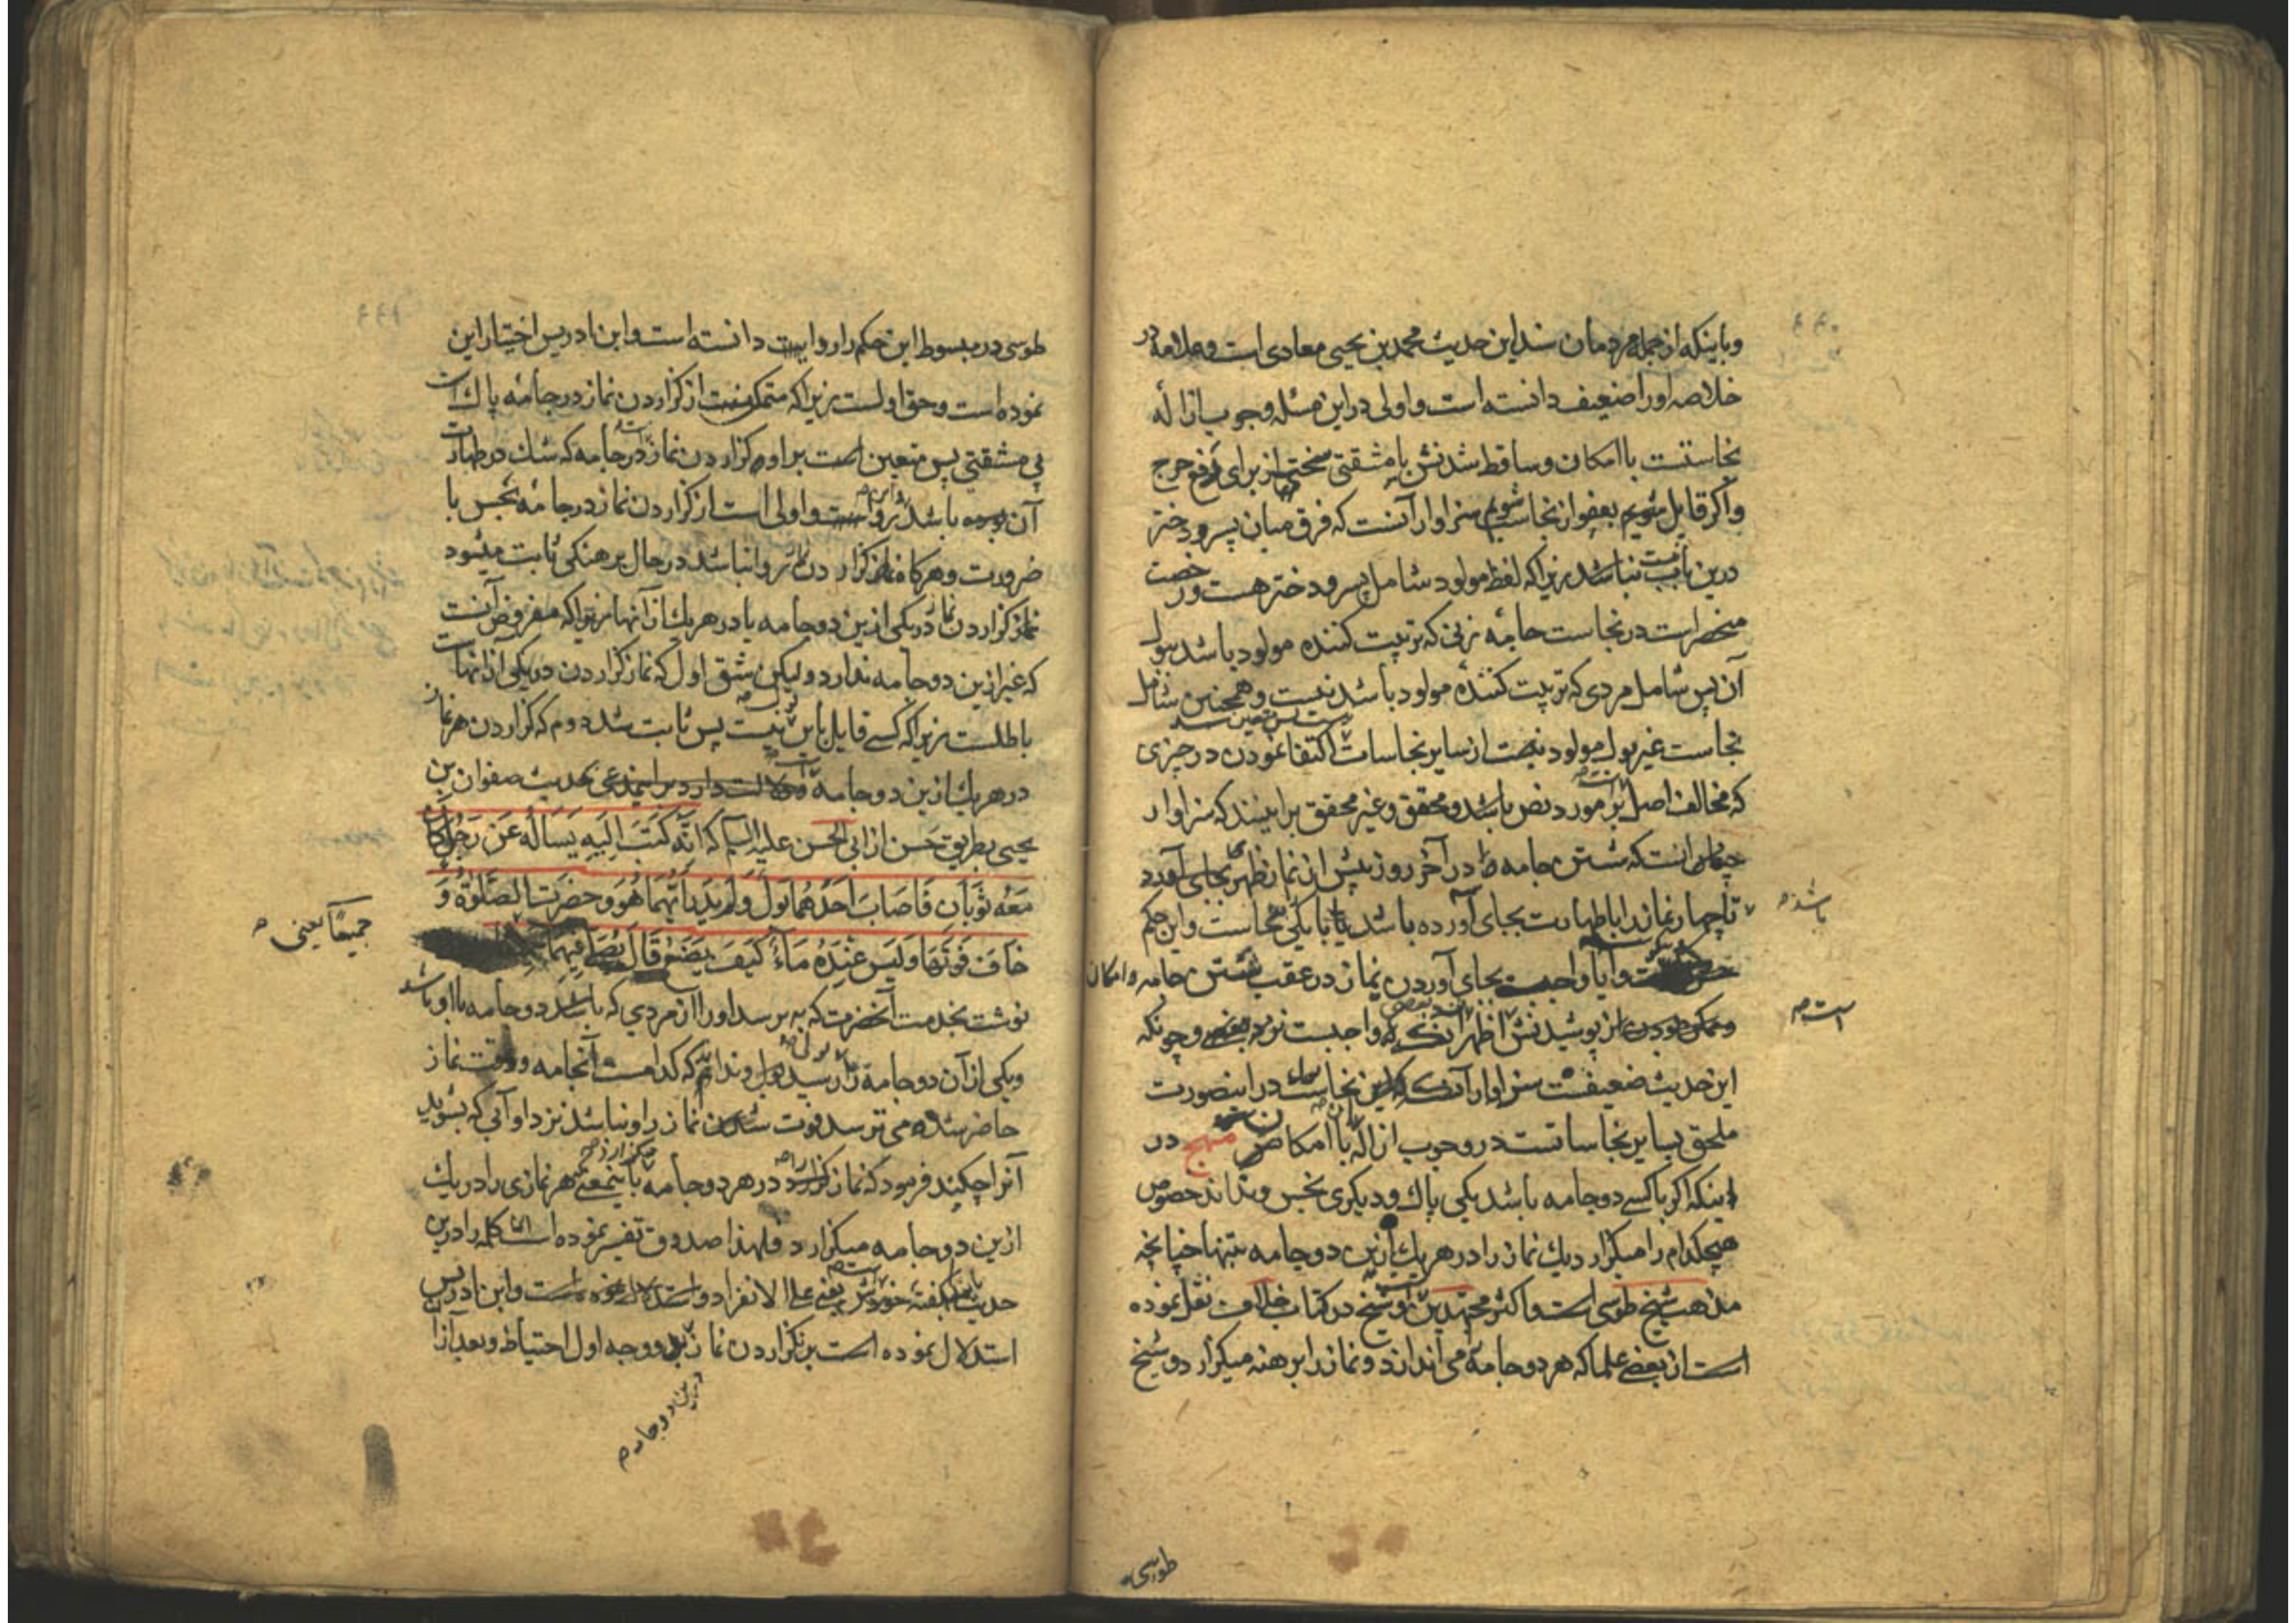 وباینکه از جمله مردمان سند این حدیث محمد بن یحیی معادی است وعلامه در
خلاصه او را ضعیف دانسته است و اولی در این مسئله وجوب ازاله
نجاستست با امکان وساقط شدنش با مشقتی سختی از برای دفع حرج
واکر قایل شویم بعفو از نجاست سزاوار آنست که فرق میان پسر ودختر
درین باب نباشد زیرا که لفظ مولود شامل پسر ودختر هست ورخصت
منحصر است در نجاست جامه زنی که تربیت کننده مولود باشد ببول
آن پس شامل مردی که تربیت کننده مولود باشد نیست وهمچنین شامل
نجاست غیر بول مولود نیست از سایر نجاسات پس متعین است اکتفا نمودن در چیزی
که مخالف اصل است بر مورد نص باشد ومحقق وغیر محقق برانیند که سزاوار
چنان است که شستن جامه را در آخر روز پیش از نماز ظهر بجای آورد
تا چهار نماز را با طهارت بجای آورده باشد یا با یکی نجاست واین حکم
باشد
وایا واجبست بجای آوردن نماز در عقب شستن جامه وامکان
است
پوشیدنش اظهر آنست که واجبست نزد بعضی وچونکه
این حدیث ضعیفست سزاوار آنست که این نجاست در اینصورت
ملحق بسایر نجاساتست در وجوب ازاله با امکان منهج در
اینکه اکر با کسی دو جامه باشد یکی پاک ودیکری نجس ونداند خصوص
هیچکدام را میکزارد یک نماز را در هر یک ازین دو جامه بتنها چنانچه
مذهب شیخ طوسی است واکثر مجتهدین وشیخ در کتاب خلاف نقل نموده
است از بعضی علما که هر دو جامه می اندازد ونماز را برهنه میکزارد وشیخ
طوسی
طوسی در مبسوط این حکم را روایت دانسته است وابن ادریس اختیار این
نموده است وحق اولست زیرا که متمکنست از کزاردن نماز در جامه پاک
بی مشقتی پس متعین است براو کزاردن نماز در جامه که شک در طهارت
آن باشد واولی است از کزاردن نماز در جامه نجس با
ضرورت وهرکاه نماز کزاردن روا نباشد در حال برهنکی ثابت میشود
نماز کزاردن در یکی ازین دو جامه یا در هر یک از آنها زیرا که مفروض آنست
که غیر ازین دو جامه ندارد ولیکن شق اول که نماز کزاردن در یکی از آنهاست
باطلست زیرا که کسی قایل باین نیست پس ثابت شد دوم که کزاردن هر نماز
در هر یک ازین دو جامه است ودلالت دارد براینمدعی حدیث صفوان بن
یحیی بطریق حسن از ابی الحسن علیه السلام که انه کتب الیه یساله عن رجل کان
معه ثوبان فاصاب احدهما بول ولم یدر ایهما هو وحضرت الصلوة و
خاف فوتها ولیس عنده ماء کیف یصنع قال یصلی فیهما
جمیعا یعنی
نوشت بخدمت آنحضرت که به پرسد او را از مردی که باشد دو جامه با او باشد
ویکی از آن دو جامه را رسید بول وندانم که کدامست آنجامه ووقت نماز
حاضر شده می ترسد فوت شدن نماز را ونباشد نزد او آبی که بشوید
آنرا چکند فرمود که نماز کزارد در هر دو جامه باینمعنی هر نمازی را در یک
ازین دو جامه میکزارد فلهذا صدوق تفسیر نموده است کلمه را درین
حدیث بکفته خودش یعنی علی الانفراد وابن ادریس
استدلال نموده است بر نکزاردن نماز وجه اول احتیاط وبعد از آن
درین دو جامه